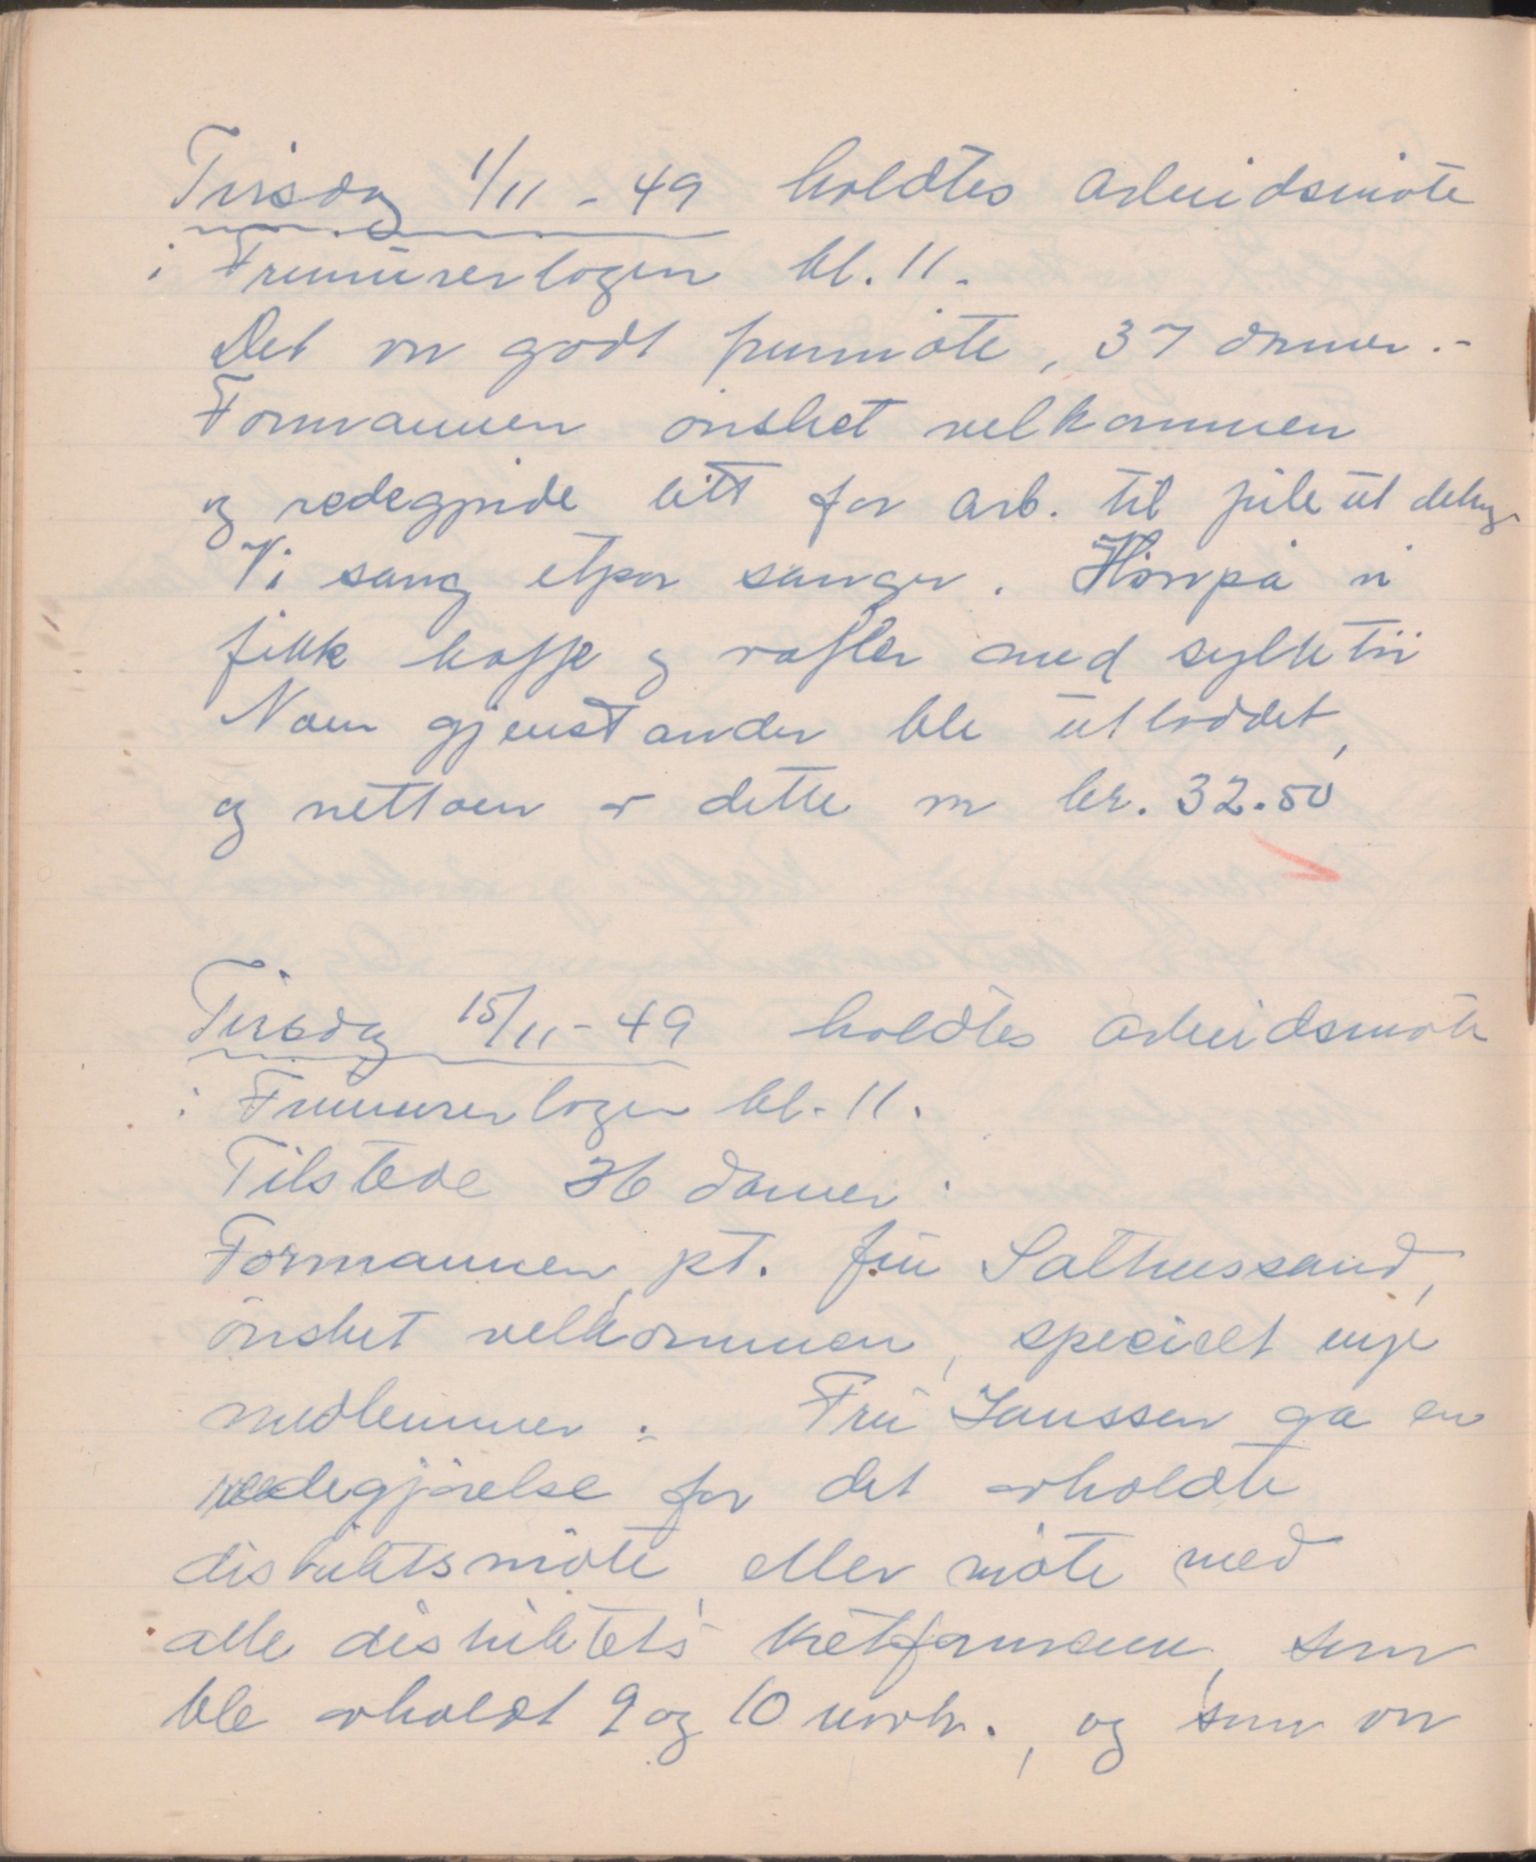 Tirsdag 1/11 - 49 holdtes arbeidsmøte
i Frimurerlogen kl. 11.
Det var godt fremmøte, 37 damer.-
Formannen ønsket velkommen
og redegjorde litt for arb. til juleutdeling
Vi sang etpar sanger. Hvorpå vi
fikk kaffe og vafler med syltetøi
Noen gjenstander ble utloddet,
og nettoen av dette var kr. 32.50
Tirsdag 15/11 - 49 holdtes arbeidsmøte
i Frimurerlogen kl. 11.
Tilstede 36 damer.
Formannen, pt. fru Salhussand,
ønsket velkommen, specielt nye
medlemmer. Fru Janssen ga en
redegjørelse for det avholdte
distriktsmøte, eller møte med
alle distriktets kretsformenn, som
ble avholdt 9 og 10 novbr., og som var